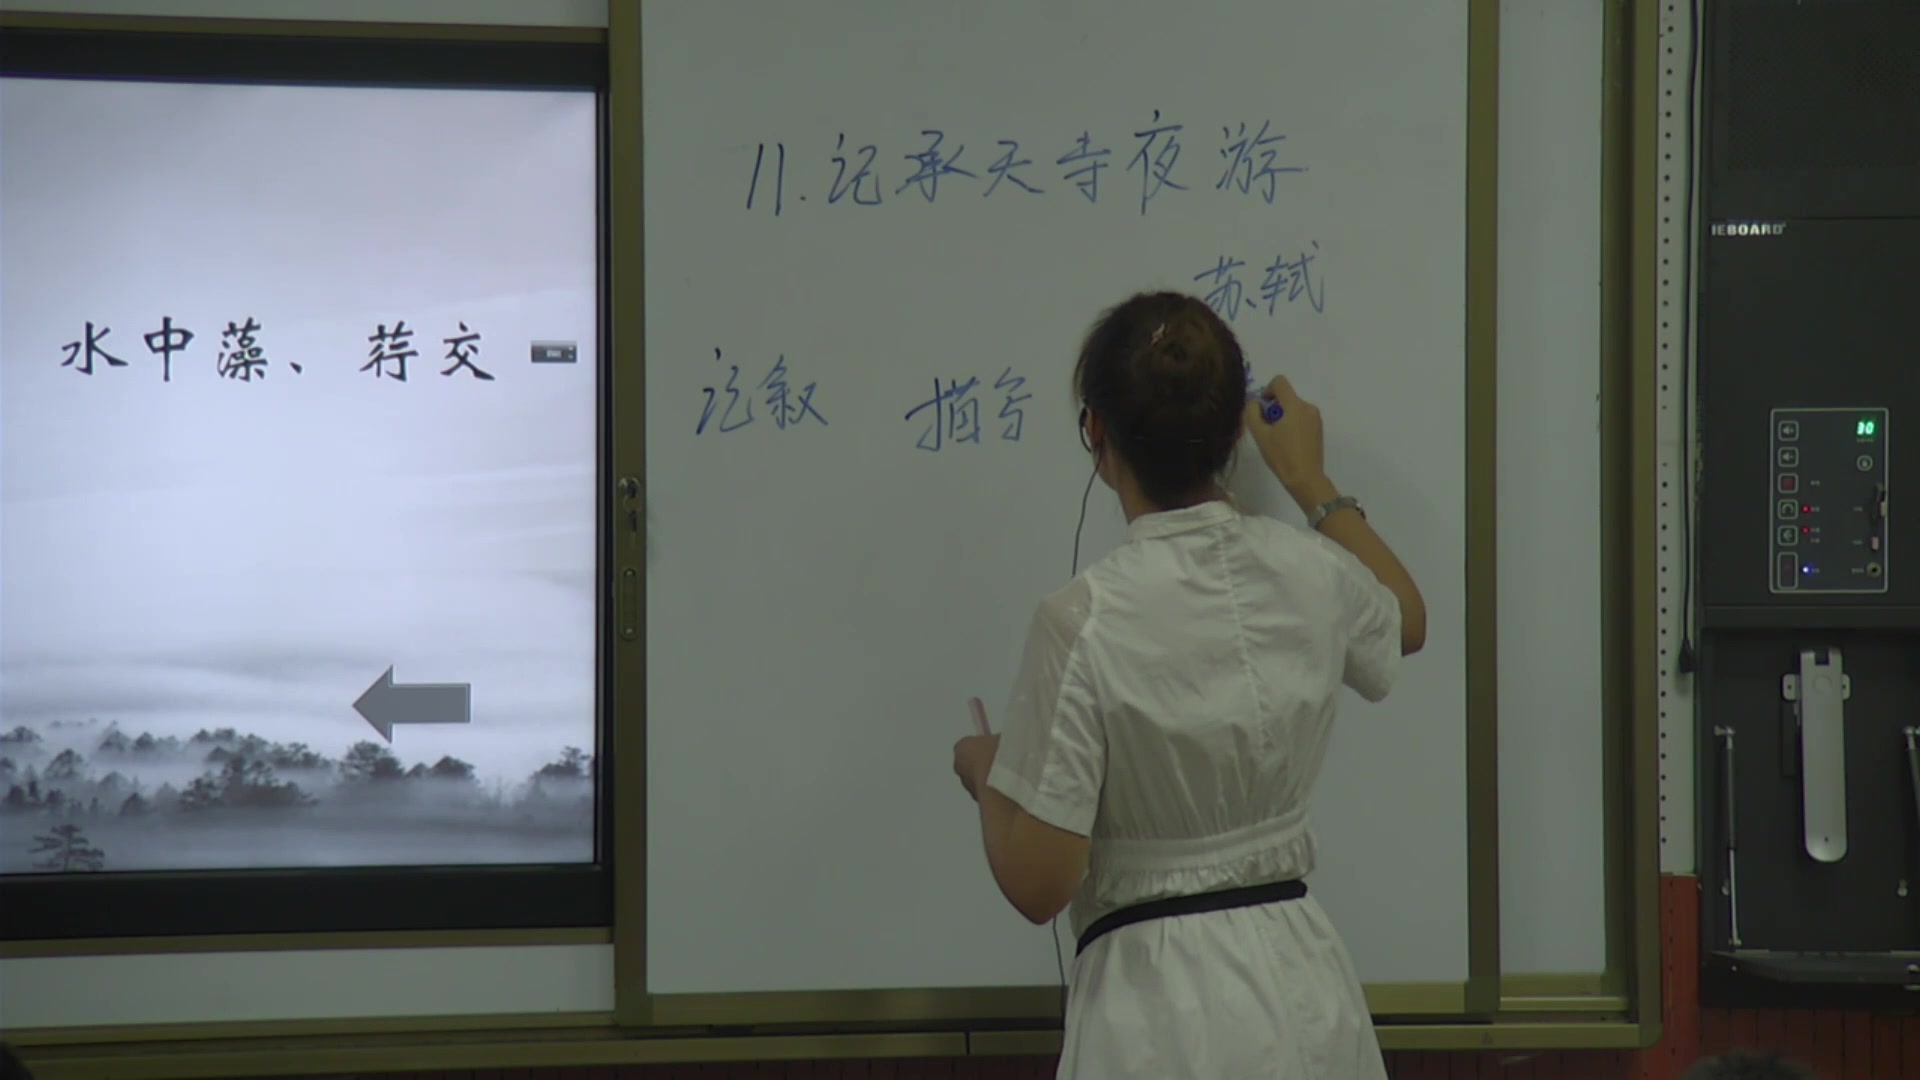 水中藻、荇交
11.记承天寺夜游
苏轼
记叙 描写
IEBOARD
30